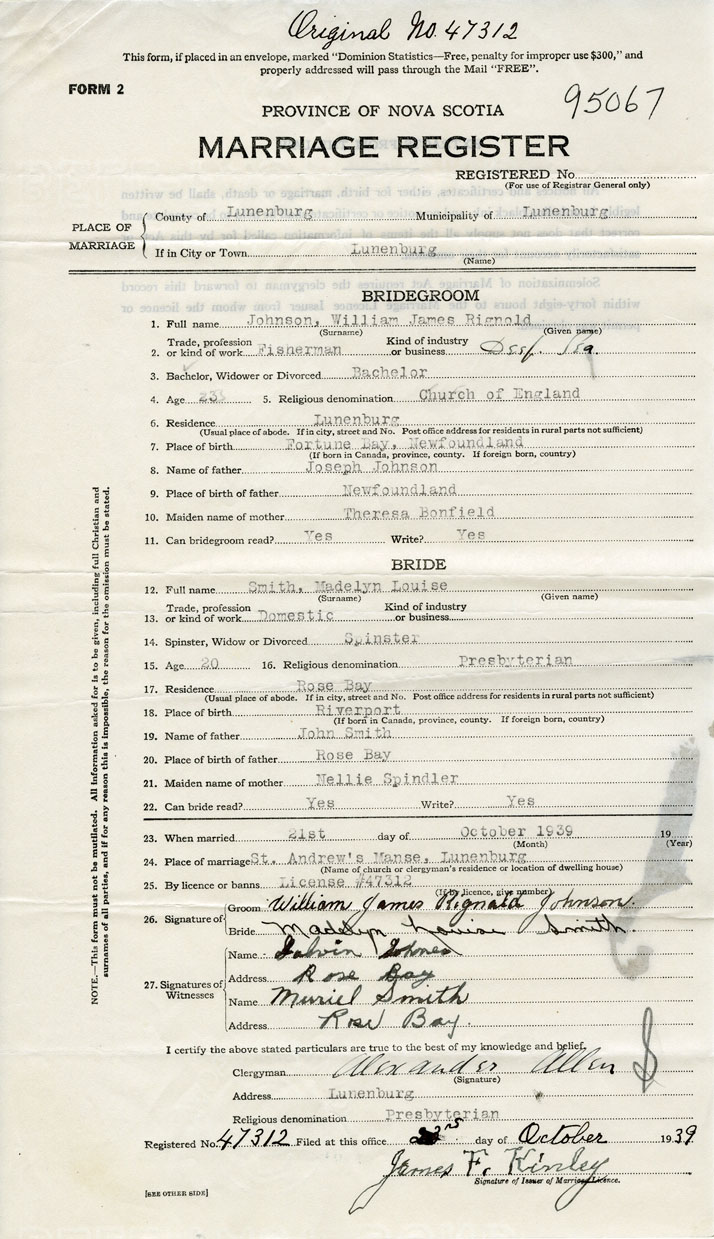 Original No. 47312
This form, if placed in an envelope, marked "Dominion Statistics—Free, penalty for improper use $300," and
properly addressed will pass through the Mail "FREE".
FORM 2
95067
PROVINCE OF NOVA SCOTIA
MARRIAGE REGISTER
REGISTERED No
(For use of Registrar General only)
PLACE OF MARRIAGE
County of Lunenburg Municipality of Lunenburg
If in City or Town Lunenburg
(Name)
BRIDEGROOM
1. Full name Johnson, William James Rignold
(Surname) (Given name)
2. Trade, profession or kind of work Fisherman Kind of industry or business Deep Sea.
3. Bachelor, Widower or Divorced Bachelor
4. Age 23 5. Religious denomination Church of England
6. Residence Lunenburg
(Usual place of abode. If in city, street and No. Post office address for residents in rural parts not sufficient)
7. Place of birth Fortune Bay, Newfoundland
(If born in Canada, province, county. If foreign born, country)
8. Name of father Joseph Johnson
9. Place of birth of father Newfoundland
10. Maiden name of mother Theresa Bonfield
11. Can bridegroom read? Yes Write? Yes
BRIDE
12. Full name Smith, Madelyn Louise
(Surname) (Given name)
13. Trade, profession or kind of work Domestic Kind of industry or business
14. Spinster, Widow or Divorced Spinster
15. Age 20 16. Religious denomination Presbyterian
17. Residence Rose Bay
(Usual place of abode. If in city, street and No. Post office address for residents in rural parts not sufficient)
18. Place of birth Riverport
(If born in Canada, province, county. If foreign born, country)
19. Name of father John Smith
20. Place of birth of father Rose Bay
21. Maiden name of mother Nellie Spindler
22. Can bride read? Yes Write? Yes
23. When married 21st day of October 1939 19
(Month) (Year)
24. Place of marriage St. Andrew's Manse, Lunenburg
(Name of church or clergyman's residence or location of dwelling house)
25. By licence or banns License #47312
(If by licence, give number)
26. Signature of Groom William James Rignald Johnson.
Bride Madelyn Louise Smith.
27. Signatures of Witnesses
Name
Address Rose Bay
Name Muriel Smith
Address Rose Bay.
I certify the above stated particulars are true to the best of my knowledge and belief.
Clergyman Alexander Allen
(Signature)
Address Lunenburg
Religious denomination Presbyterian
Registered No. 47312 Filed at this office day of October 1939
James F. Kinley
Signature of Issuer of Marriage Licence.
[SEE OTHER SIDE]
NOTE.—This form must not be mutilated. All Information asked for is to be given, including full Christian and
surnames of all parties, and if for any reason this is impossible, the reason for the omission must be stated.